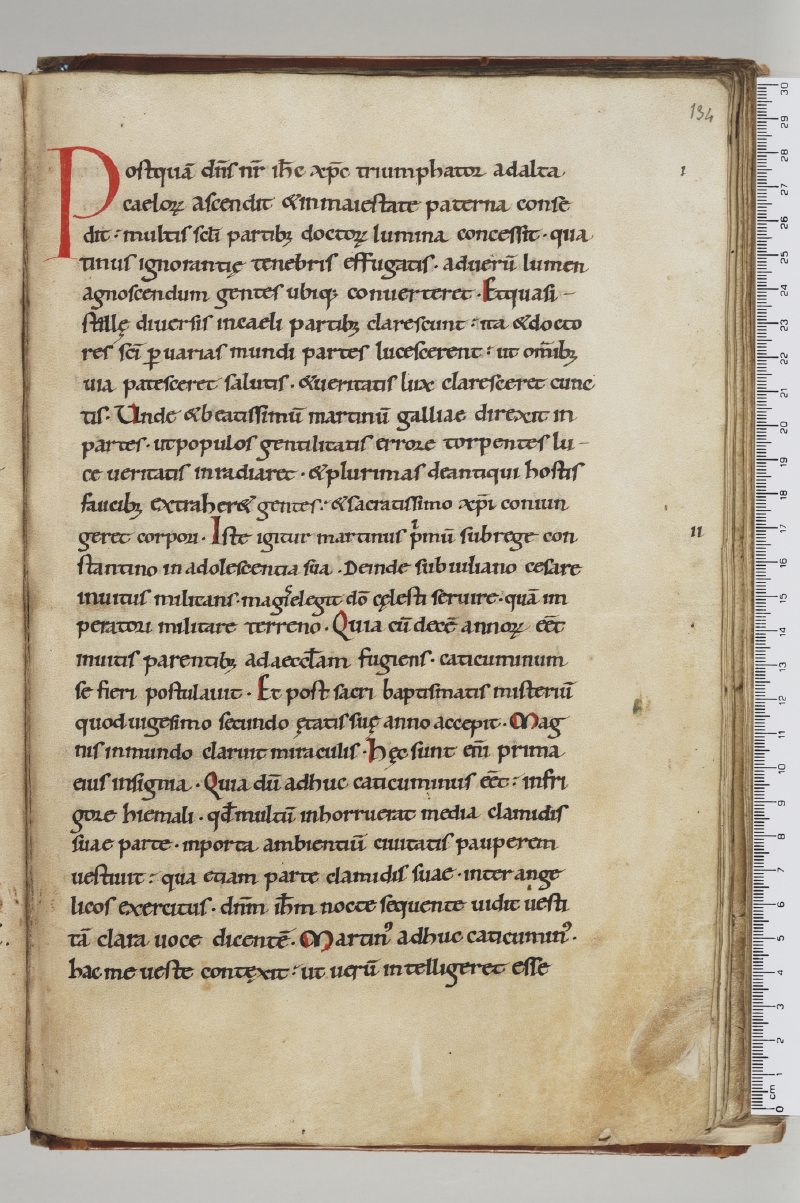 134
Postquā dn̄s nr̄ ih̄c xp̄c triumphator adalta
I
caeloꝝ ascendit &inmaiestate paterna conse
dit : multis scd̄i partibꝫ doctoꝝ lumina concessit · qua
tinus ignorantię tenebris effugatis · aduerū lumen
agnoscendum gentes ubiqꝫ conuerteret · Etquasi –
stellę diuersis incaeli partibꝫ clarescunt : ita &docto
res scī ꝑuarias mundi partes lucescerent : ut om̄ibꝫ
uia patesceret salutis · &ueritatis lux claresceret cunc
tis · Unde &beatissimū martinū galliae direxit in
partes · utpopulos gentilitatis errore torpentes lu –
ce ueritatis inradiaret · &plurimas deantiqui hostis
faucibꝫ extraher& gentes : &sacratissimo xp̄i coniun
geret corpori · Iste igitur martinus pⁱmū subrege con
II
stantino inadolescentia sua · Deinde subiuliano cesare
inuitus militans · magⁱs elegit dō cęlesti seruire · quā im
peratori militare terreno · Quia cū decē annoꝝ eēt
inuitis parentibꝫ adaeccl̄am fugiens · caticuminum
se fieri postulauit · Et post sacri baptismatis misteriū
quod uigesimo secundo ętatis suę anno accepit · Mag
nis inmundo claruit miraculis · Hęc sunt em̄ prima
eius insignia · Quia dū adhuc caticuminus eēt : infri
gore hiemali · qd̄ multū inhorruerat media clamidis
suae parte · inporta ambientiū ciuitatis pauperem
uestiuit : qua etiam parte clamidis suae · inter ange
licos exercitus · dn̄m ih̄m nocte sequente uidit uesti
tā clara uoce dicentē · Martinꝰ adhuc caticuminꝰ ·
hac me ueste contęxit : ut uerū intelligeret esse